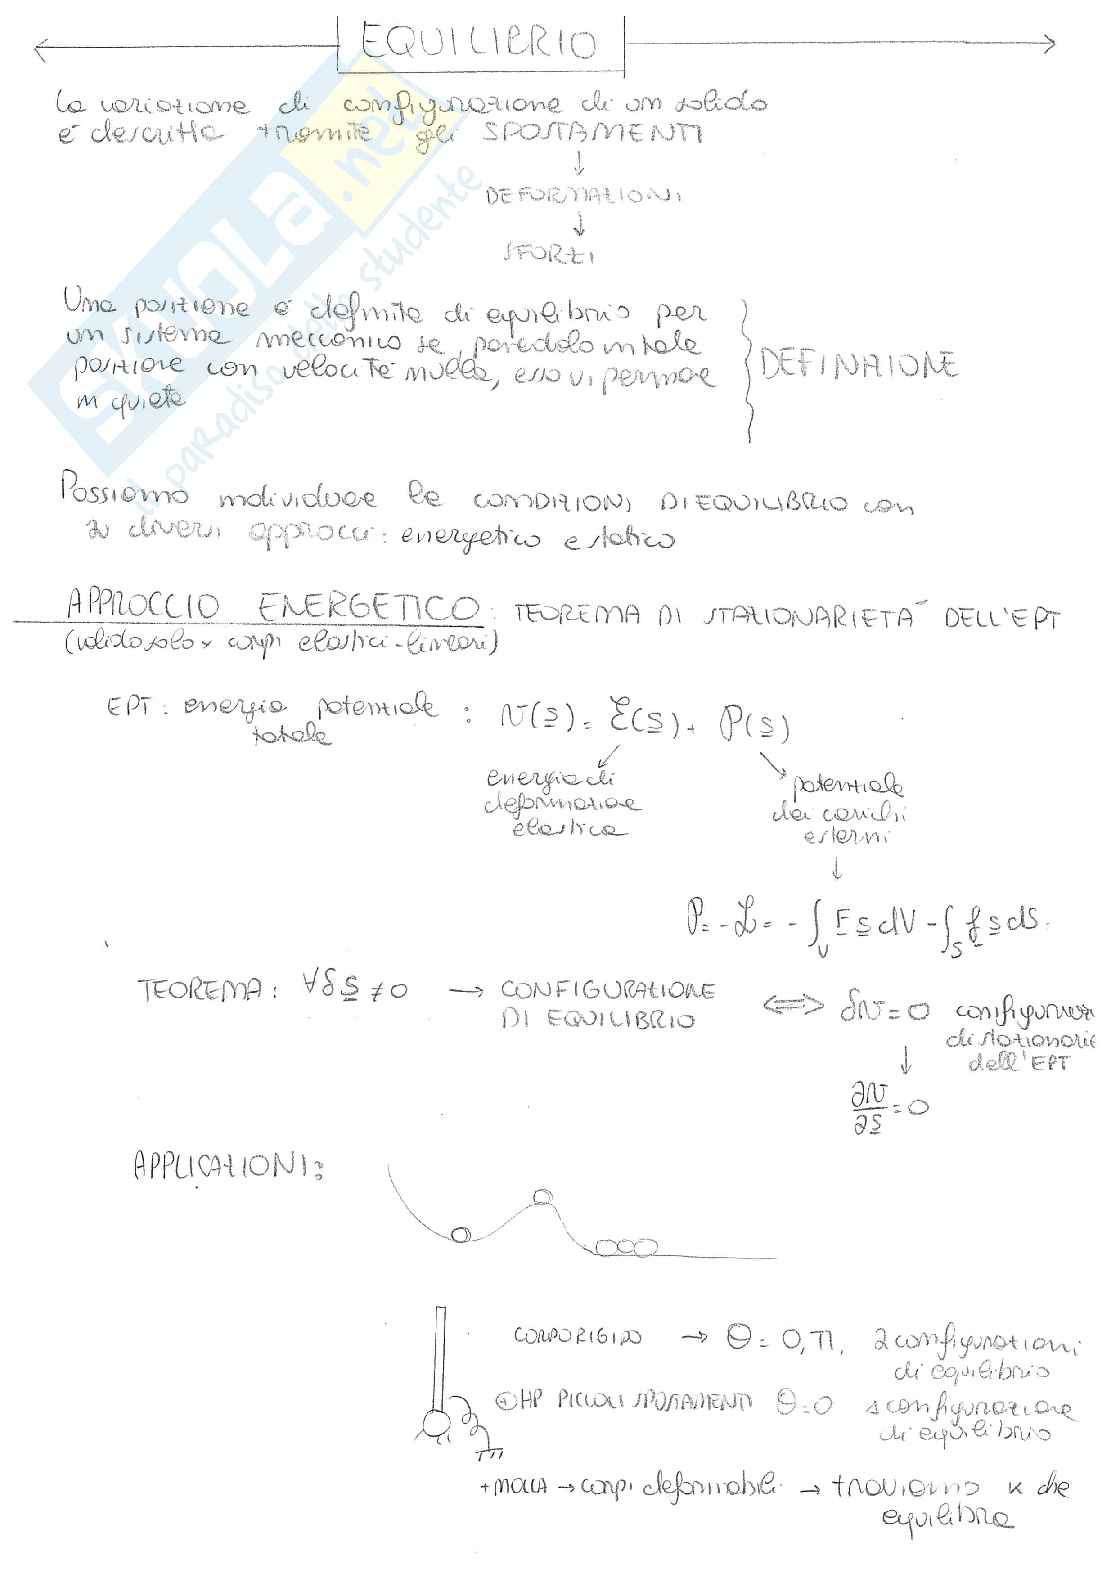 EQUILIBRIO
la variazione di configurazione di un solido
e' descritta tramite gli SPOSTAMENTI
↓
DEFORMAZIONI
↓
SFORZI
Una posizione e' definita di equilibrio per
un sistema meccanico se, ponendolo in tale
posizione con velocità nulla, esso vi permane
in quiete
DEFINIZIONE
Possiamo individuare le CONDIZIONI DI EQUILIBRIO con
2 diversi approcci: energetico e statico
APPROCCIO ENERGETICO: TEOREMA DI STAZIONARIETA' DELL'EPT
(valido solo x corpi elastici-lineari)
EPT: energia potenziale totale : V(s) = E(s) + P(s)
energia di deformazione elastica
potenziale dei carichi esterni
↓
P = -L = -∫V F s dV - ∫S f s dS
TEOREMA: ∀δs ≠ 0 → CONFIGURAZIONE DI EQUILIBRIO ⟺ δV = 0 configurazi di stazionarie dell'EPT
↓
∂V/∂s = 0
APPLICAZIONI:
CORPO RIGIDO → θ = 0, π, 2 configurazioni di equilibrio
⊕ HP PICCOLI SPOSTAMENTI θ = 0 1 configurazione di equilibrio
+ MOLLA → corpi deformabili → troviamo K che equilibra
SKUOLA.net
il paradiso dello studente